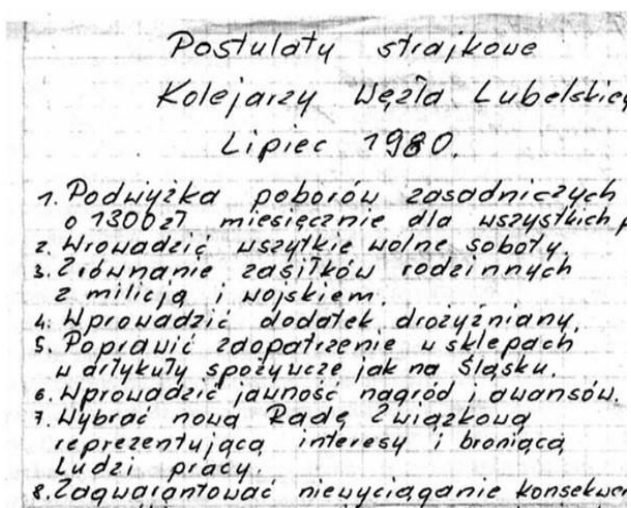 Postulaty strajkowe
Kolejarzy Węzła Lubelskieg
Lipiec 1980.
1. Podwyżka poborów zasadniczych
o 1300 zł miesięcznie dla wszystkich p
2. Wrowadzić wszytkie wolne soboty.
3. Zrównanie zasiłków rodzinnych
z milicją i wojskiem.
4. Wprowadzić dodatek drożyźniany.
5. Poprawić zaopatrzenie w sklepach
w artykuły spożywcze jak na Śląsku.
6. Wprowadzić jawność nagród i awansów.
7. Wybrać nową Radę Związkową
reprezentującą interesy i broniącą
Ludzi pracy.
8. Zagwarantować niewyciąganie konsekwen